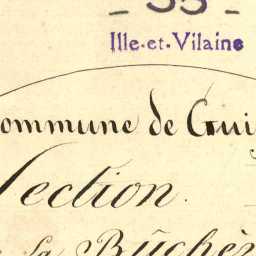 - 35 -
Ille-et-Vilaine
ommune de Gui
Section.
la Bûchè